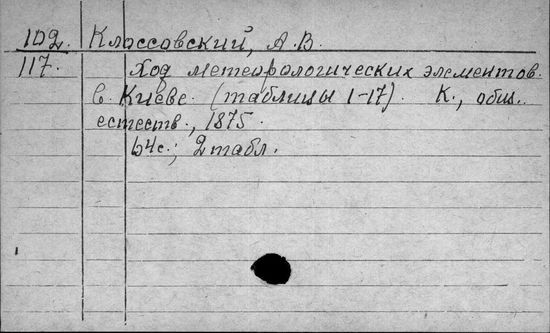 102. Клоссовский, А.В.
117. Ход метеорологических элементов
в Киеве. (таблицы 1-17). К., общ.
естеств., 1875.
64с.; 2 табл.